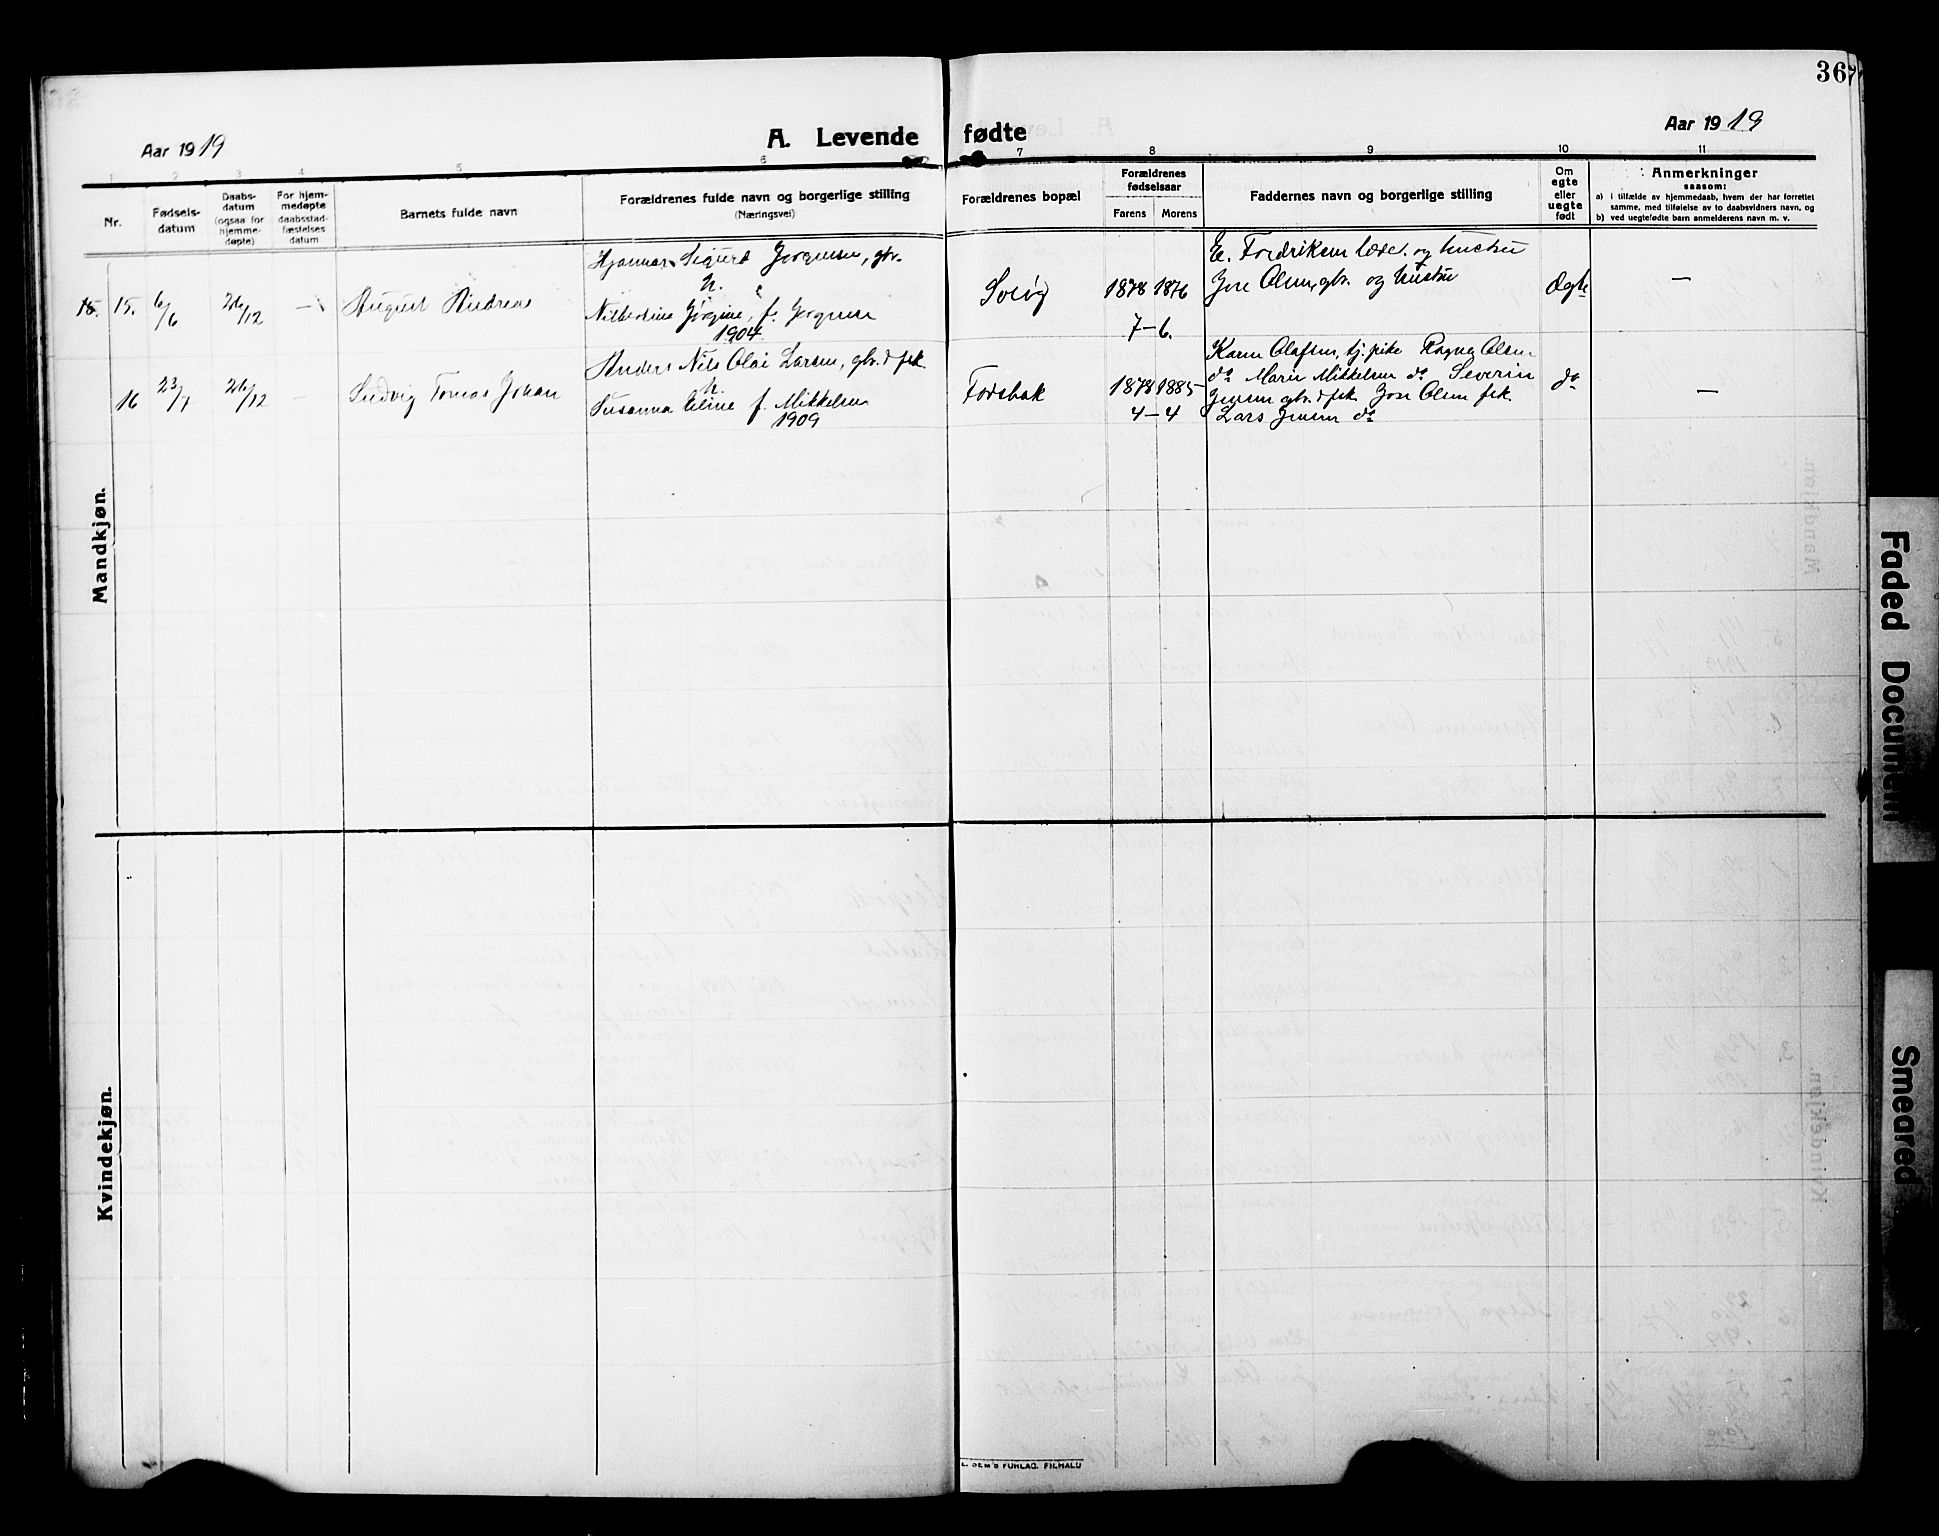 36
Aar 1919
A. Levende fødte
Aar 1919
1 2 3 4 5 6 7 8 9 10 11
Nr.
Fødsels-
datum
Daabs-
datum
(ogsaa for
hjemme-
døpte)
For hjem-
medøpte
daabsstad-
fæstelses
datum
Barnets fulde navn
Forældrenes fulde navn og borgerlige stilling
(Næringsvei)
Forældrenes bopæl
Forældrenes
fødselsaar
Farens
Morens
Faddernes navn og borgerlige stilling
Om
egte
eller
uegte
født
Anmerkninger
saasom:
a) i tilfælde av hjemmedaab, hvem der har forrettet
samme, med tilføielse av to daabsvidners navn, og
b) ved uegtefødte barn anmelderens navn m. v.
Mandkjøn.
15. 15. 6/6 26/12 — August Andreas
Hjalmar Sigurd Jørgensen, gbr.
h.
Jørgine, f. Jørgensen
1904
1878 1876
7-6.
E. Fredriksen og hustru
Olsen, gbr. og hustru
Ægte
—
16 23/7 26/12 — Ludvig Tomas Johan
Anders Nils Olai Larsen, gbr. & fsk.
h.
Susanna Eline f. Mikkelsen
1909
Forsbak
1878 1885
4-4
Karen Olafsen, tj. pike Ragna Olsen
do Marie Mikkelsen do Severin
Jensen gbr. & fsk. Olsen fsk.
Lars Jensen do
do
—
Kvindekjøn.
SEM'S FORLAG. FR.HALD
Faded Document
Smeared